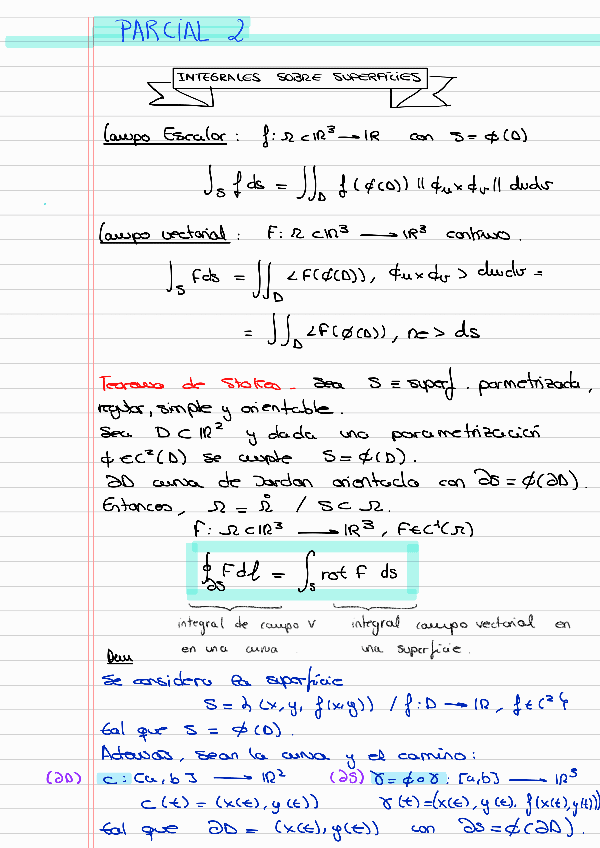 PARCIAL 2
INTEGRALES SOBRE SUPERFÍCIES
Campo Escalar: f: Ω ⊂ ℝ³ → ℝ con S = ϕ(D)
∫_S f ds = ∬_D f(ϕ(D)) ‖ϕu × ϕv‖ dudv
Campo vectorial: F: Ω ⊂ ℝ³ → ℝ³ continuo.
∫_S F ds = ∬_D <F(ϕ(D)), ϕu × ϕv> dudv =
= ∬_D <F(ϕ(D)), ne> ds
Teorema de Stokes. Sea S ≡ superf. parmetrizada,
regular, simple y orientable.
Sea D ⊂ ℝ² y dada una parametrización
ϕ ∈ C²(D) se cumple S = ϕ(D).
∂D curva de Jordan orientada con ∂S = ϕ(∂D).
Entonces, Ω = Ω̊ / S ⊂ Ω.
F: Ω ⊂ ℝ³ → ℝ³, F ∈ C¹(Ω)
∮_∂S F dl = ∫_S rot F ds
integral de campo v integral campo vectorial en
en una curva una superficie.
Dem
Se considera la superficie
S = {(x, y, f(x,y)) / f: D → ℝ, f ∈ C²}
tal que S = ϕ(D).
Además, sean la curva y el camino:
(∂D) c: [a, b] → ℝ² (∂S) γ = ϕ∘γ: [a,b] → ℝ³
c(t) = (x(t), y(t)) γ(t) = (x(t), y(t), f(x(t), y(t)))
tal que ∂D = (x(t), y(t)) con ∂S = ϕ(∂D).